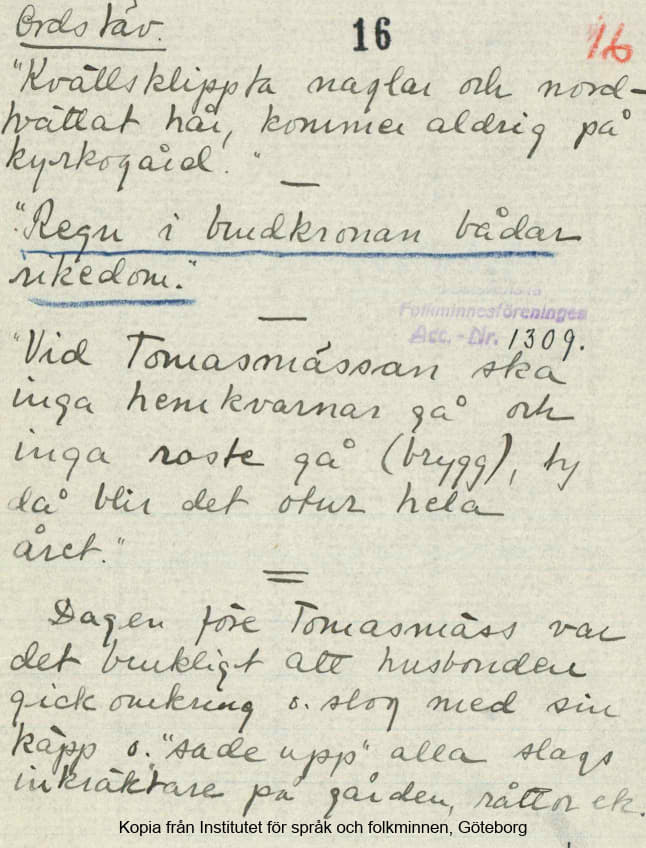 Ordstäv.
16
16
"Kvällsklippta naglar och nord-
tvättat hår, kommer aldrig på
kyrkogård."
"Regn i brudkronan bådar
rikedom."
Folkminnesföreningen
Acc. - Nr. 1309.
"Vid Tomasmässan ska
inga hemkvarnar gå och
inga roste gå (brygg), ty
då blir det otur hela
året."
Dagen före Tomasmäss var
det brukligt att husbonden
gick omkring o. slog med sin
käpp o. "sade upp" alla slags
inkräktare på gården, råttor etc.
Kopia från Institutet för språk och folkminnen, Göteborg